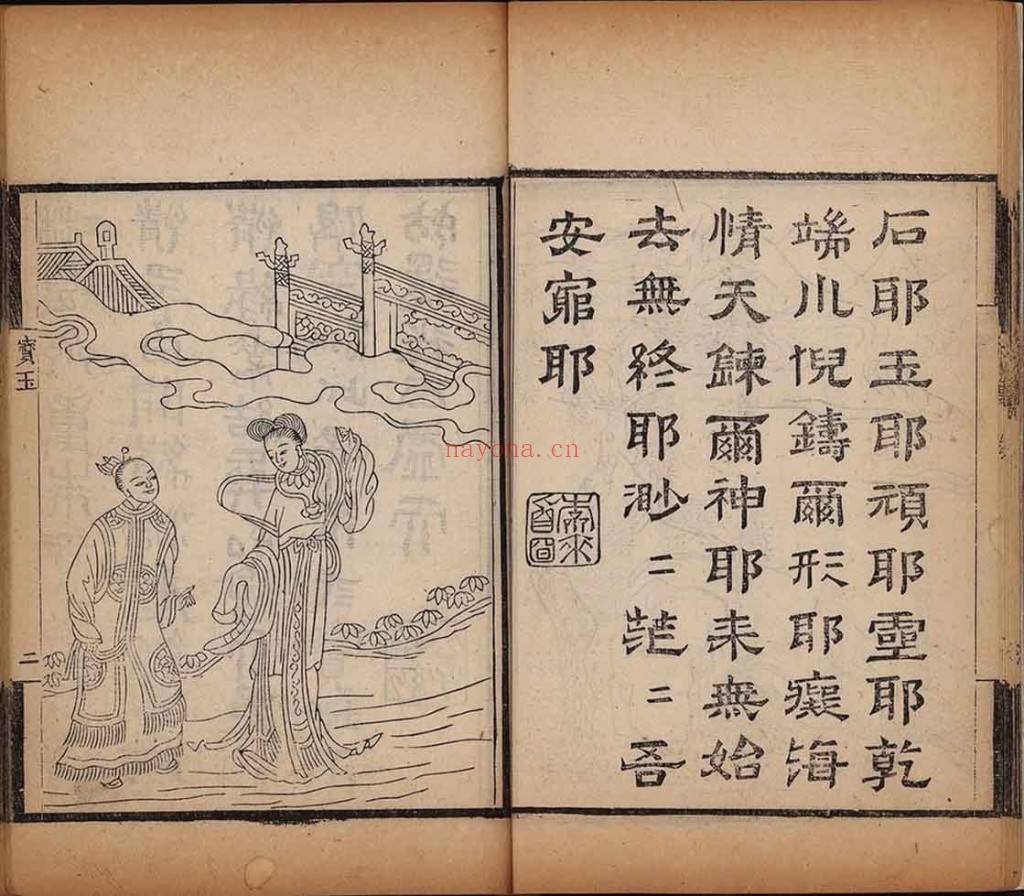 石耶玉耶頑耶靈耶乾
端巛倪鑄爾形耶癡海
情天鍊爾神耶来無始
去無終耶渺二茫二吾
安耶
寶玉
二
nayona.cn